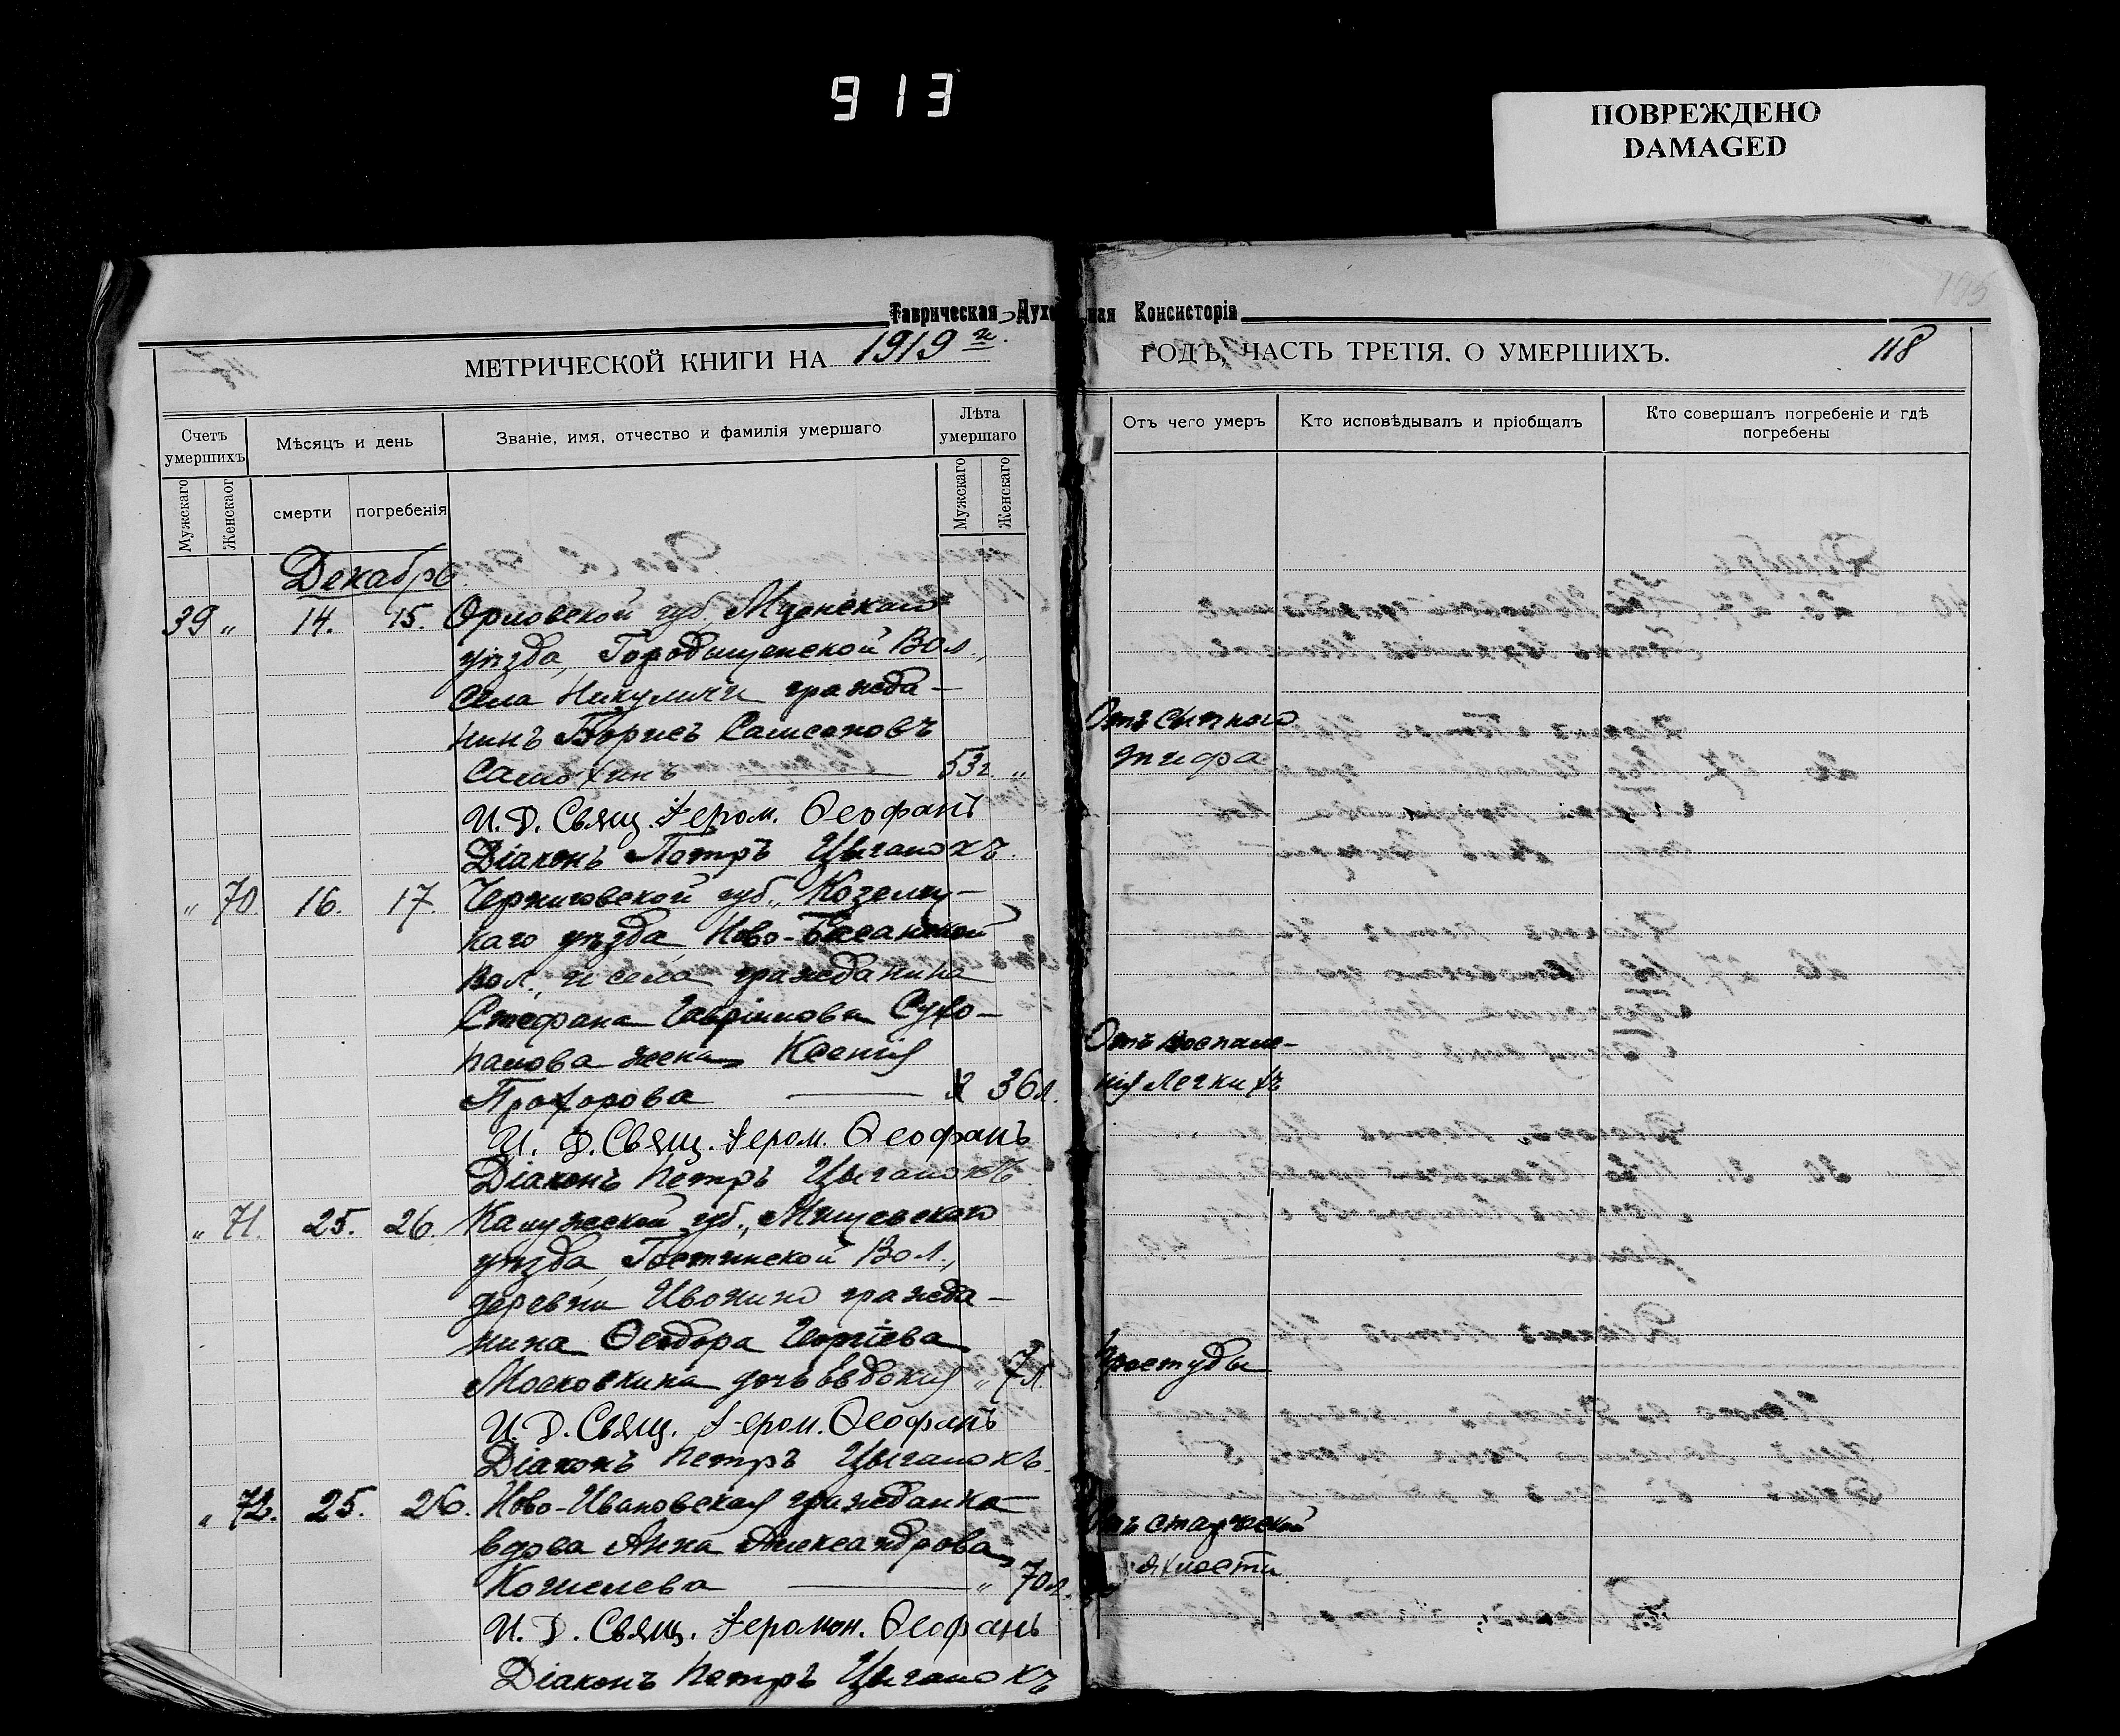 913
ПОВРЕЖДЕНО
DAMAGED
Таврическая Духо ная Консисторія
МЕТРИЧЕСКОЙ КНИГИ НА 1919 г. ГОДЪ, ЧАСТЬ ТРЕТІЯ, О УМЕРШИХЪ. 118
Счетъ умершихъ
Мѣсяцъ и день
Званіе, имя, отчество и фамилія умершаго
Лѣта умершаго
Отъ чего умеръ
Кто исповѣдывалъ и пріобщалъ
Кто совершалъ погребеніе и гдѣ погребены
Мужскаго
Женскаог
смерти
погребенія
Мужскаго
Женскаго
Декабрь
39 " 14. 15. Орловской губ., Мценскаго
уѣзда, Городищенской Вол.,
села Никуличи гражда-
нинъ Борисъ Самсоновъ Отъ сыпного
Самохинъ 53 г. " тифа
И. Д. Свящ. Іером. Ѳеофанъ
Діаконъ Петръ Цыганокъ.
" 70. 16. 17. Черниговской губ., Козелец-
каго уѣзда, Ново-Басанской
вол., и села гражданина
Стефана Гавріилова Сухо-
панова жена Ксенія Отъ воспале-
Прохорова 36 л. нія легкихъ
И. Д. Свящ. Іером. Ѳеофанъ
Діаконъ Петръ Цыганокъ.
" 71. 25. 26. Калужской губ., Мещовскаго
уѣзда, Гостинской Вол.,
деревни Ивонино гражда-
нина Ѳеодора Георгіева
Московкина дочь Евдокія " 7 л. Простуды
И. Д. Свящ. Іером. Ѳеофанъ
Діаконъ Петръ Цыганокъ.
" 72. 25. 26. Ново-Ивановская гражданка
вдова Анна Александрова Отъ старческой
Кошелева " 70 л. дряхлости
И. Д. Свящ. Іеромон. Ѳеофанъ
Діаконъ Петръ Цыганокъ